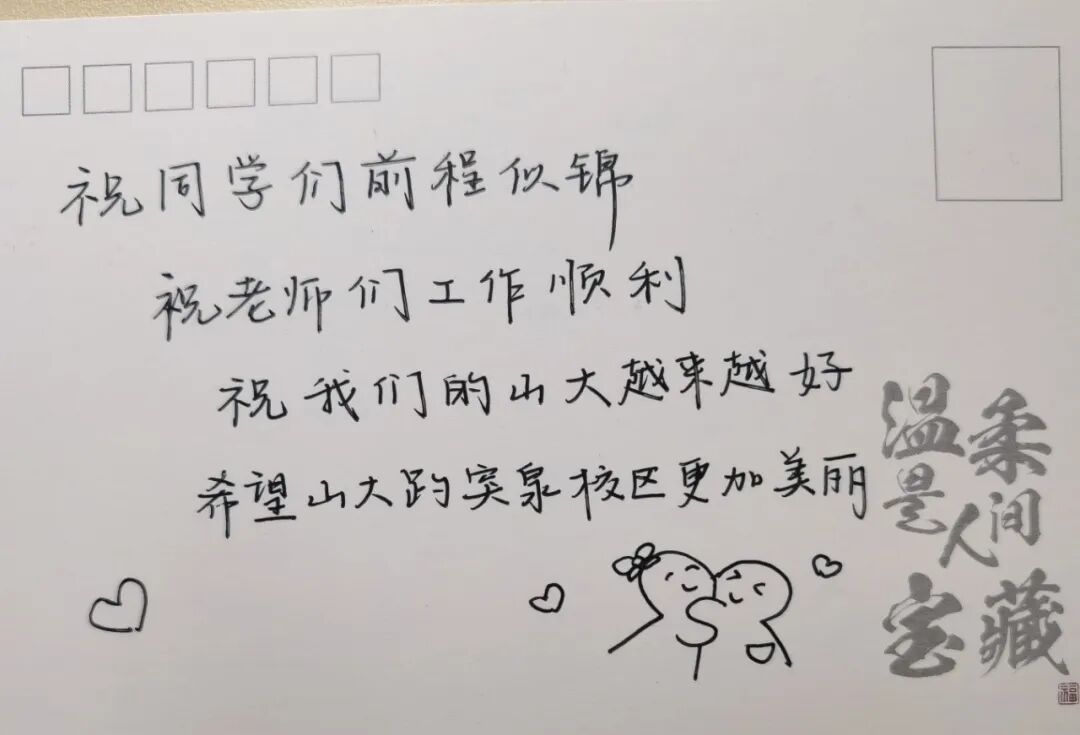 祝同学们前程似锦
祝老师们工作顺利
祝我们的山大越来越好
希望山大趵突泉校区更加美丽
温柔
是人间
宝藏
福